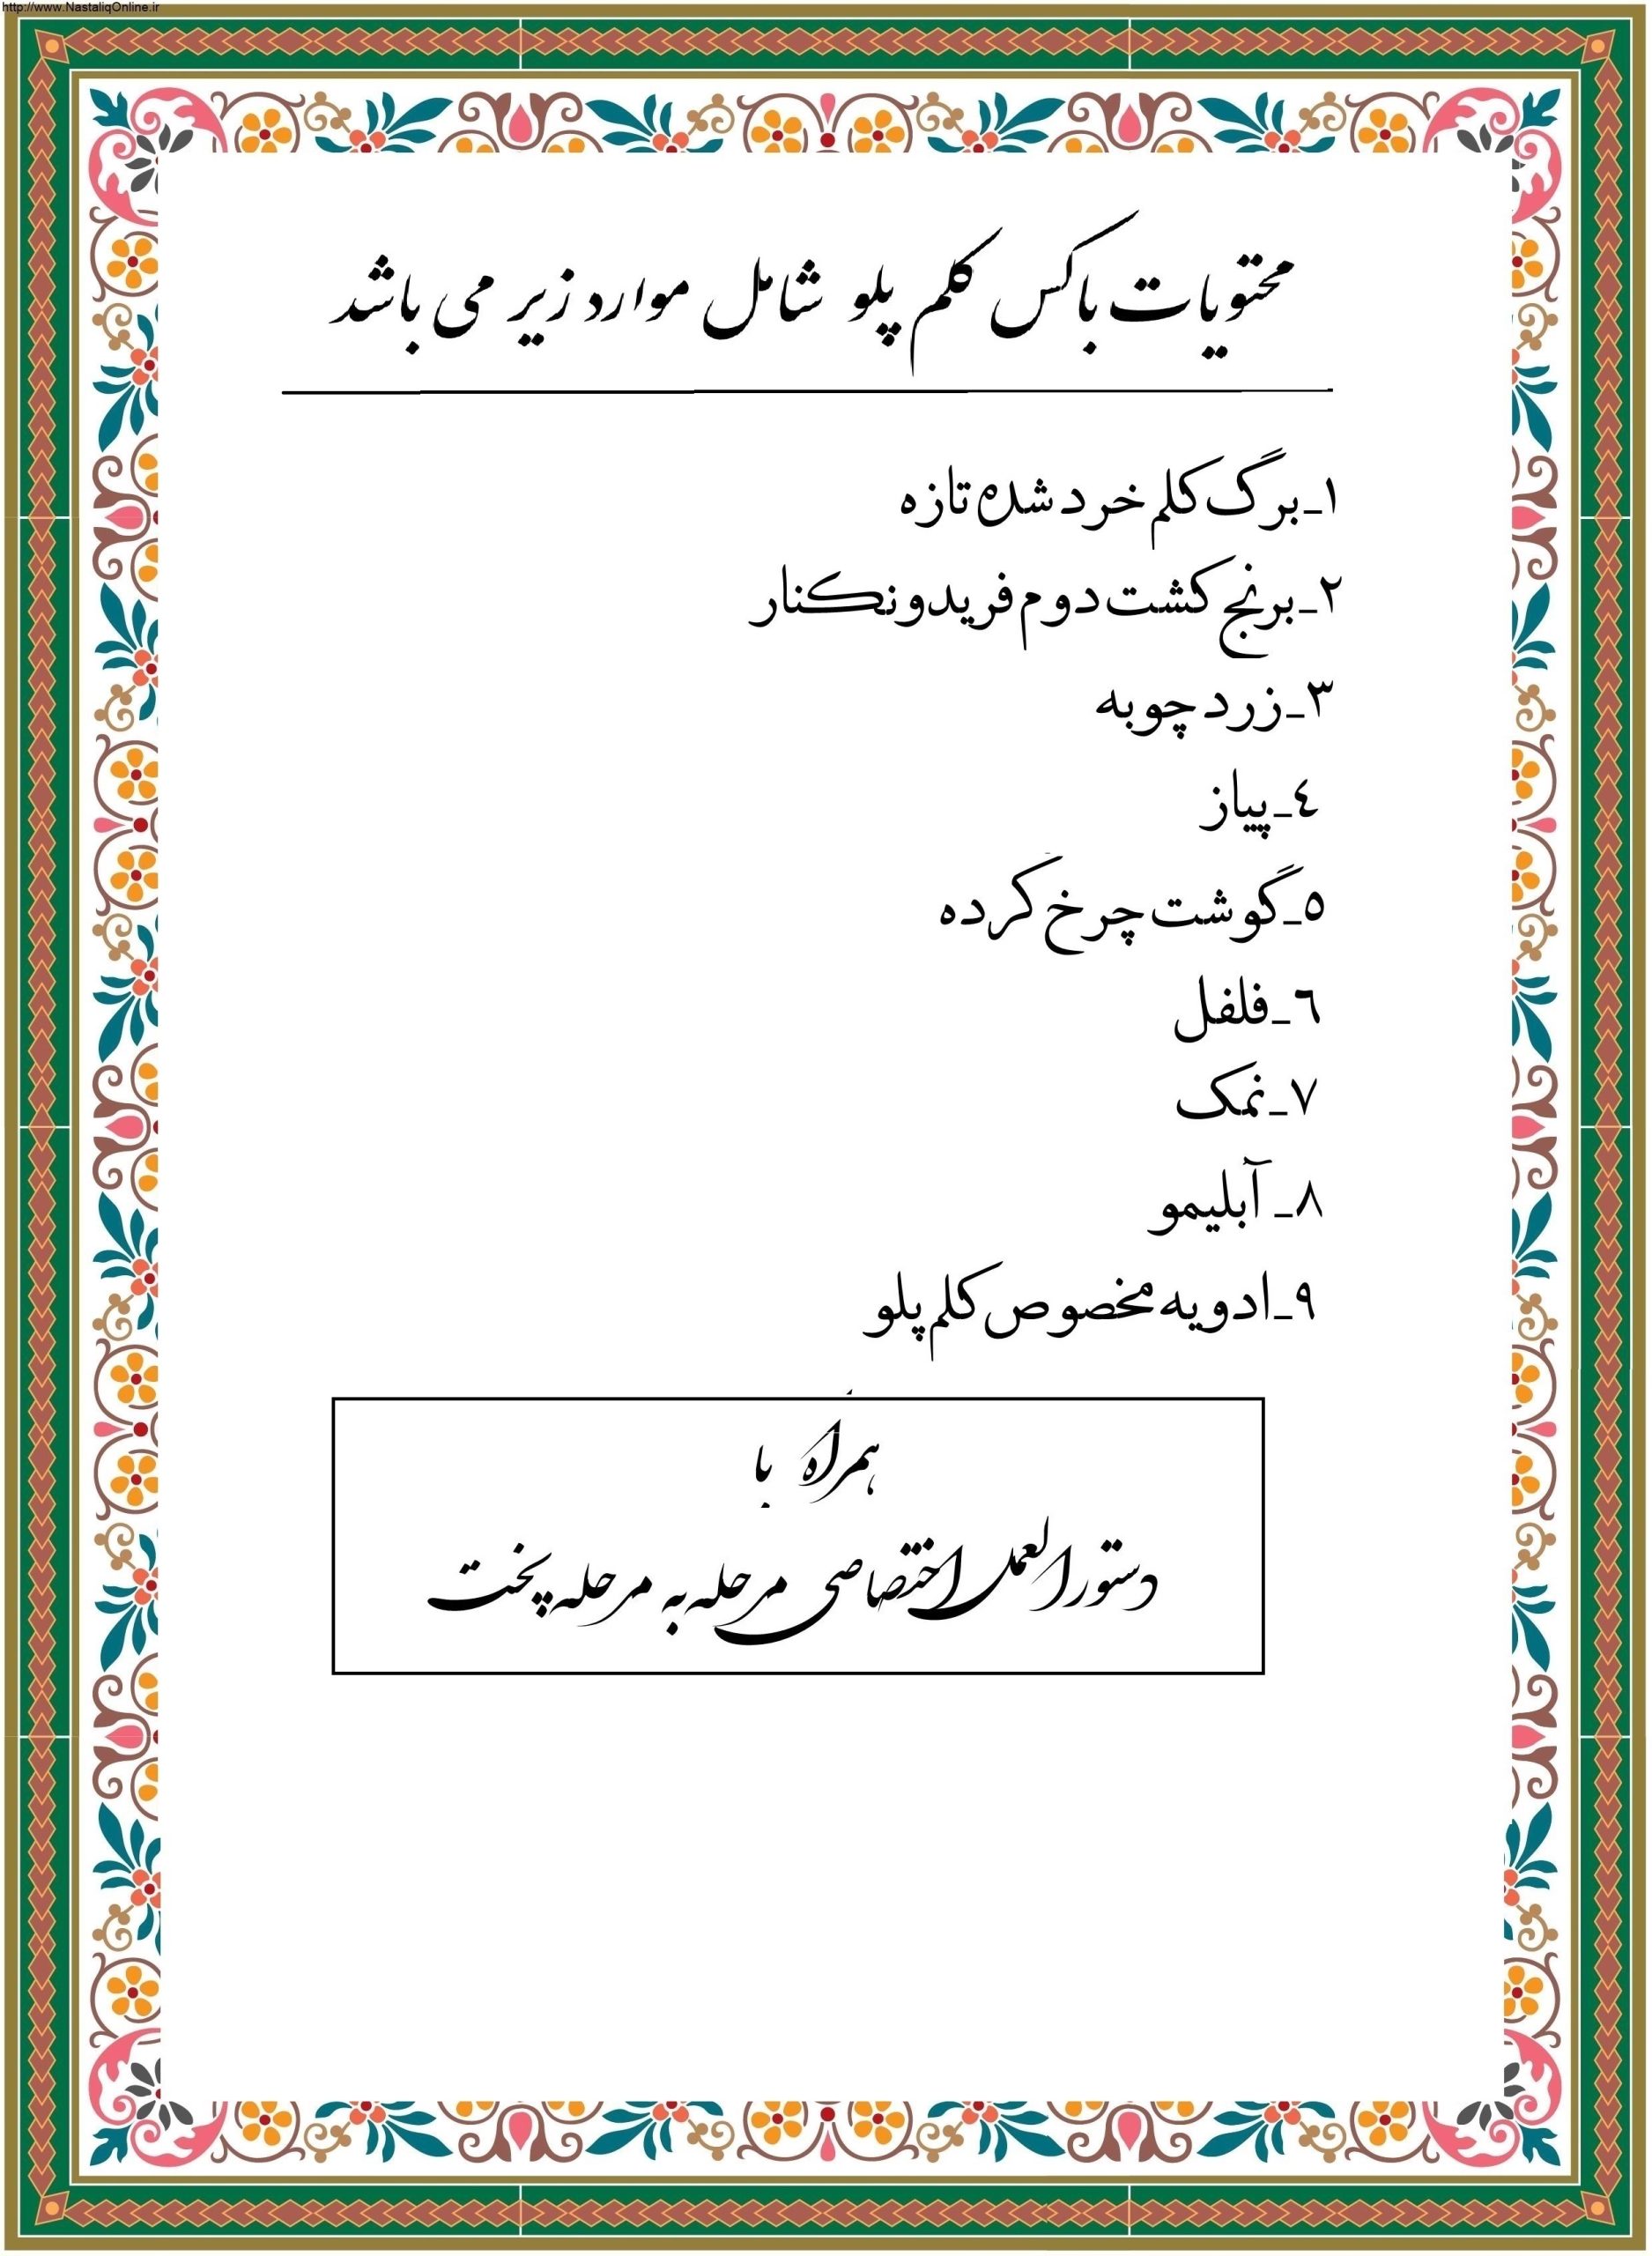 http://www.NastaliqOnline.ir
محتویات باکس کلم پلو شامل موارد زیر می باشد
۱-برگ کلم خرد شده تازه
۲-برنج کشت دوم فریدونکنار
۳-زردچوبه
٤-پیاز
٥-گوشت چرخ کرده
٦-فلفل
۷-نمک
۸-آبلیمو
۹-ادویه مخصوص کلم پلو
همراه با
دستورالعمل اختصاصی مرحله به مرحله پخت